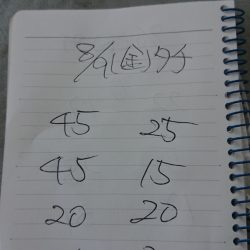 8/9(金)タチ
45 25
45 15
20 20